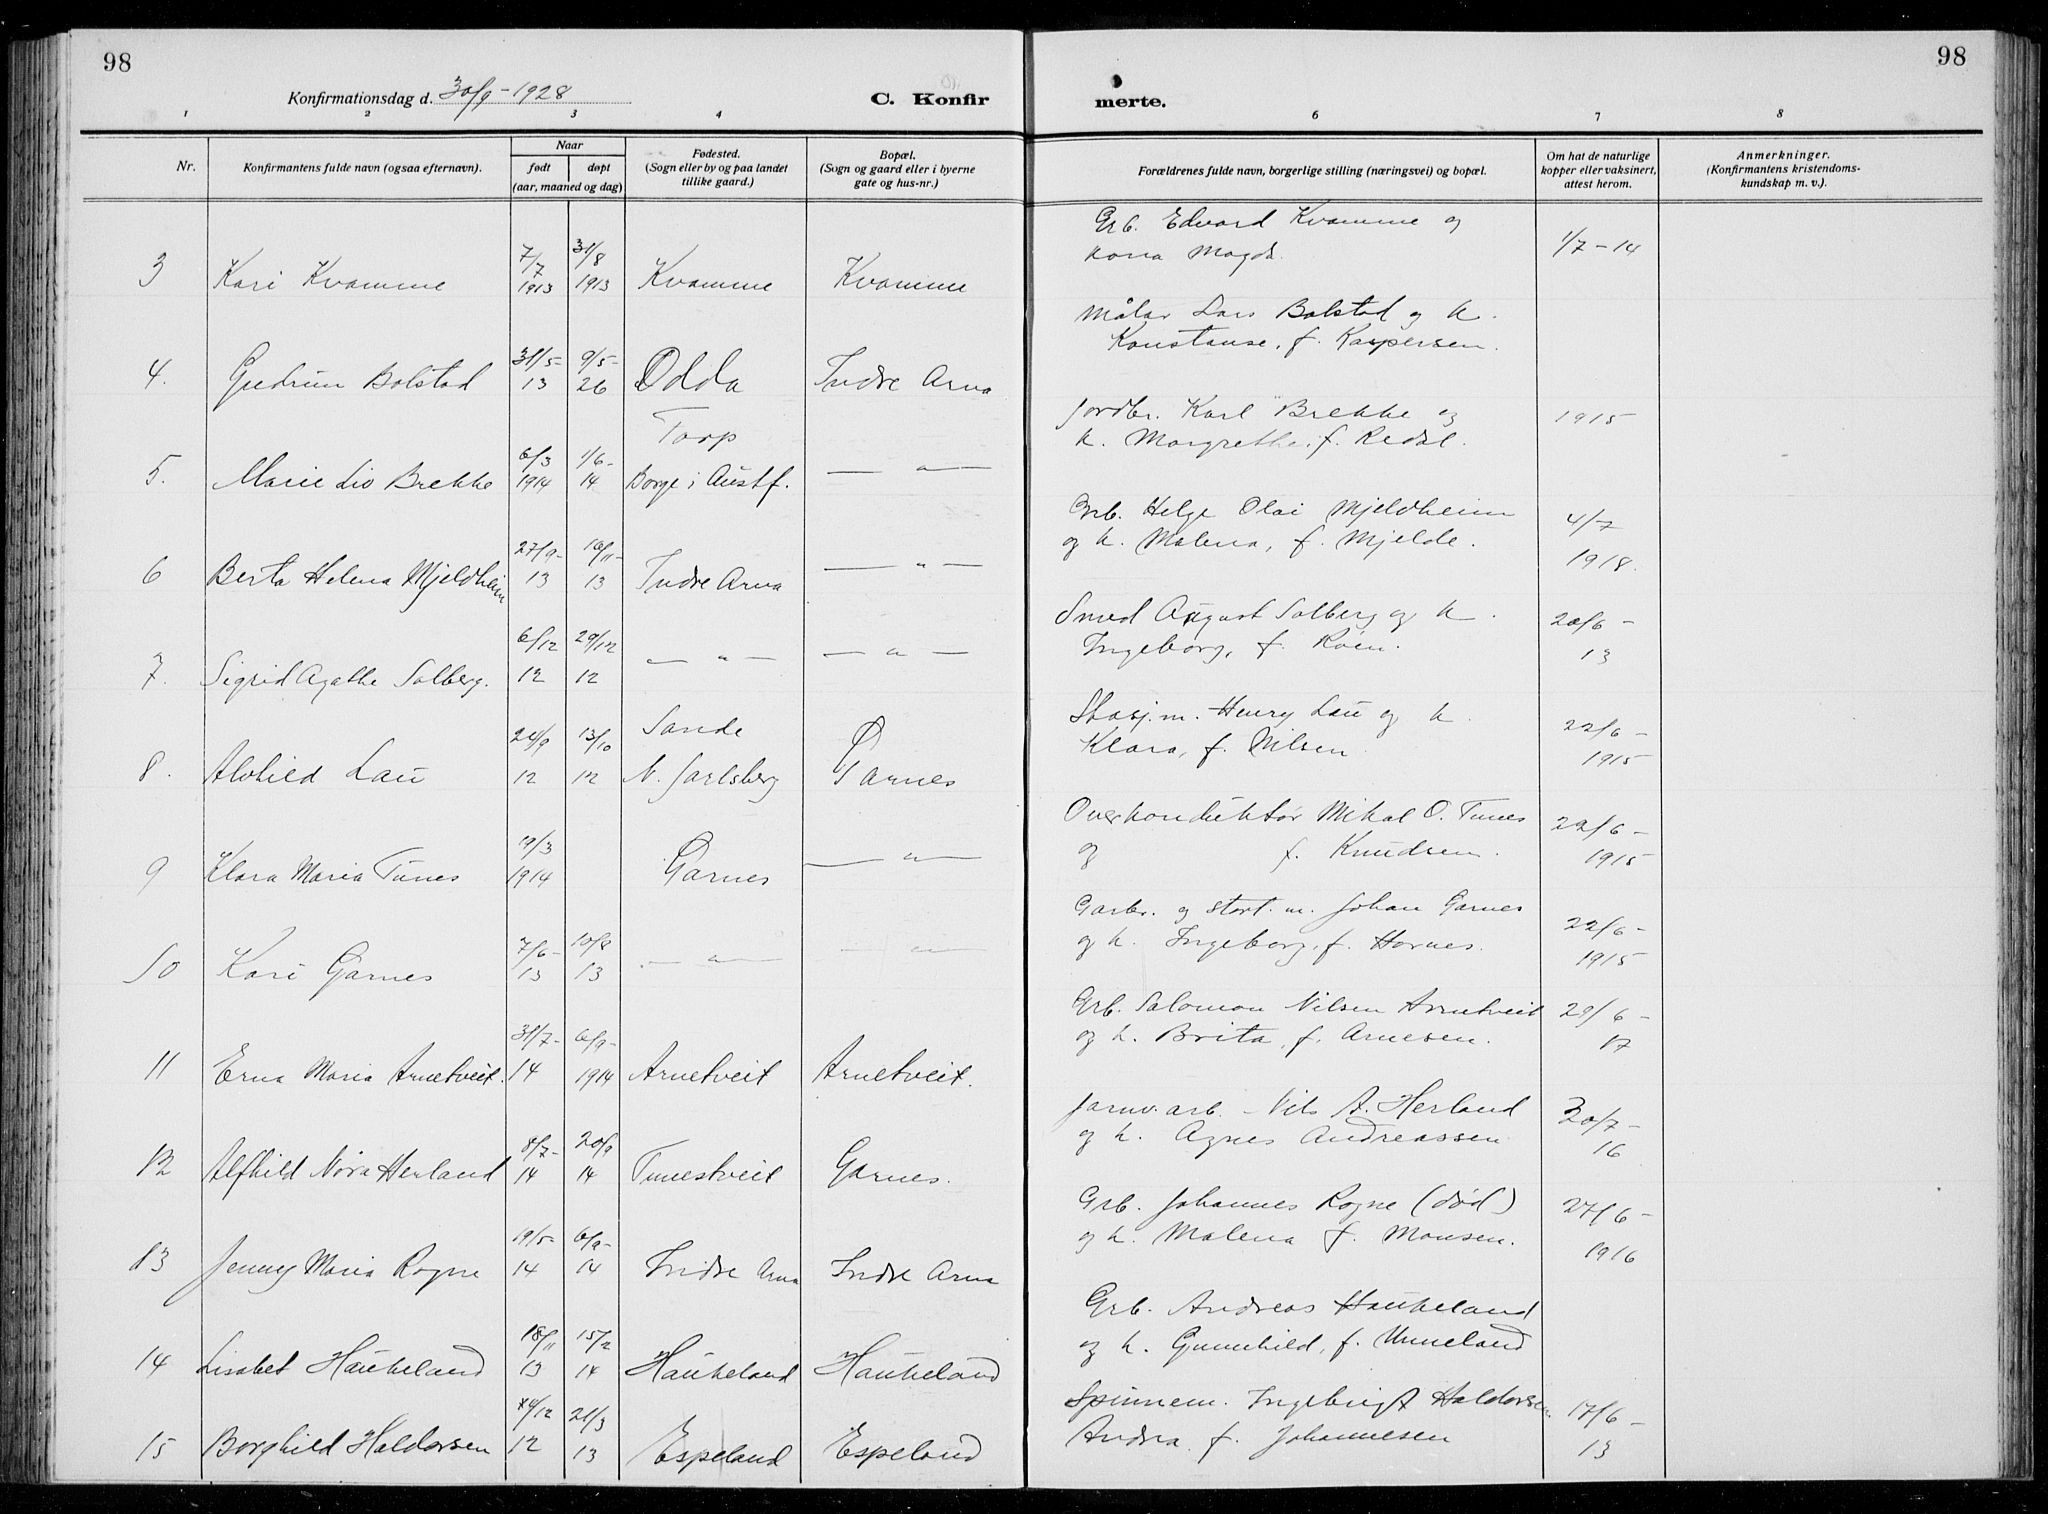 98
98
Konfirmationsdag d. 30/9 - 1928
C. Konfir
merte.
1 2 3 4 6 7 8
Nr.
Konfirmantens fulde navn (ogsaa efternavn).
Naar
født døpt
(aar, maaned og dag)
Fødested.
(Sogn eller by og paa landet
tillike gaard.)
Bopæl.
(Sogn og gaard eller i byerne
gate og hus-nr.)
Forældrenes fulde navn, borgerlige stilling (næringsvei) og bopæl.
Om hat de naturlige
kopper eller vaksinert,
attest herom.
Anmerkninger.
(Konfirmantens kristendoms-
kundskap m. v.).
Grb. Edvard Kvamme og
kona Magda.
1/7 - 14
7/7 31/8
3 Kari Kvamme 1913 1913 Kvamme Kvamme
Målar Lars Bolstad og k.
Konstanse, f. Kaspersen.
31/5- 9/5-
4. Gudrun Bolstad 13 26 Odda Indre Arna
Jordbr. Karl Brekke og
k. Margrethe, f. Redal.
1915
Torp
6/3 1/6-
5. Marie Liv Brekke 1914 14 Borge i Austf. — " —
Grb. Helge Olai Mjeldheim
og k. Malena, f. Mjelde.
4/7
1918.
27/9- 16/11-
6 Berta Helena Mjeldheim 13 13 Indre Arna — " —
Smed August Solberg og k.
Ingeborg, f. Røen.
20/6 -
13
6/12 29/12
7. Sigrid Agathe Solberg. 12 12 — " — — " —
Stasj.m. Henry Lau og k.
Klara, f. Nilsen.
22/6 -
1915
24/9 13/10 Sande
8. Alvhild Lau 12 12 N. Jarlsberg Garnes
Overkonduktør Mikal O. Tunes
og f. Knudsen.
22/6 -
1915
19/3
9 Klara Maria Tunes 1914 Garnes — " —
Garbr. og stort. m. Johan Garnes
og k. Ingeborg, f. Hornes.
22/6 -
1915
7/6- 10/8
10 Kari Garnes 13 13 — " — — " —
Grb. Salomon Nilsen Arnetveit
og k. Brita, f. Arnesen.
29/6 -
17
31/7- 6/9-
11 Erna Maria Arnetveit. 14 1914 Arnetveit Arnetveit.
Jarnv. arb. Nils A. Herland
og k. Agnes Andreassen
20/7 -
16
8/7- 20/9
12 Alfhild Nora Herland 14 14 Tunestveit Garnes.
Grb. Johannes Rogne (død)
og k. Malena f. Monsen.
27/6 -
1916
19/5- 6/9-
13 Jenny Maria Rogne 14 14 Indre Arna Indre Arna
Grb. Andreas Haukeland
og k. Gunnhild, f. Unneland
18/11 15/2
14 Lisabet Haukeland 13 14 Haukeland Haukeland
Spinnem. Ingebrigt Haldorsen
Andrea f. Johannesen
17/6 -
13
21/3
15 Borghild Haldorsen 12 13 Espeland Espeland